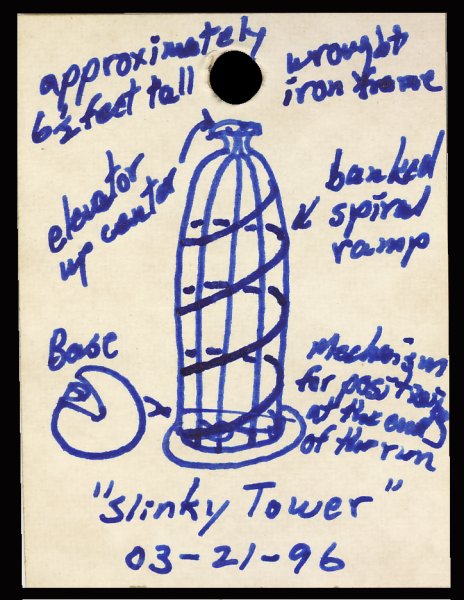 approximately
6½ feet tall
wrought
iron frame
elevator
up center
banked
spiral
ramp
Base
Mechanism
for positioning
at the end
of the run
"Slinky Tower"
03-21-96